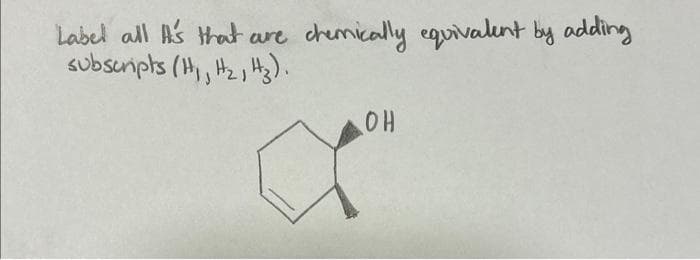 Label all H's that are chemically equivalent by adding
subscripts (H₁, H₂, H₃).
OH